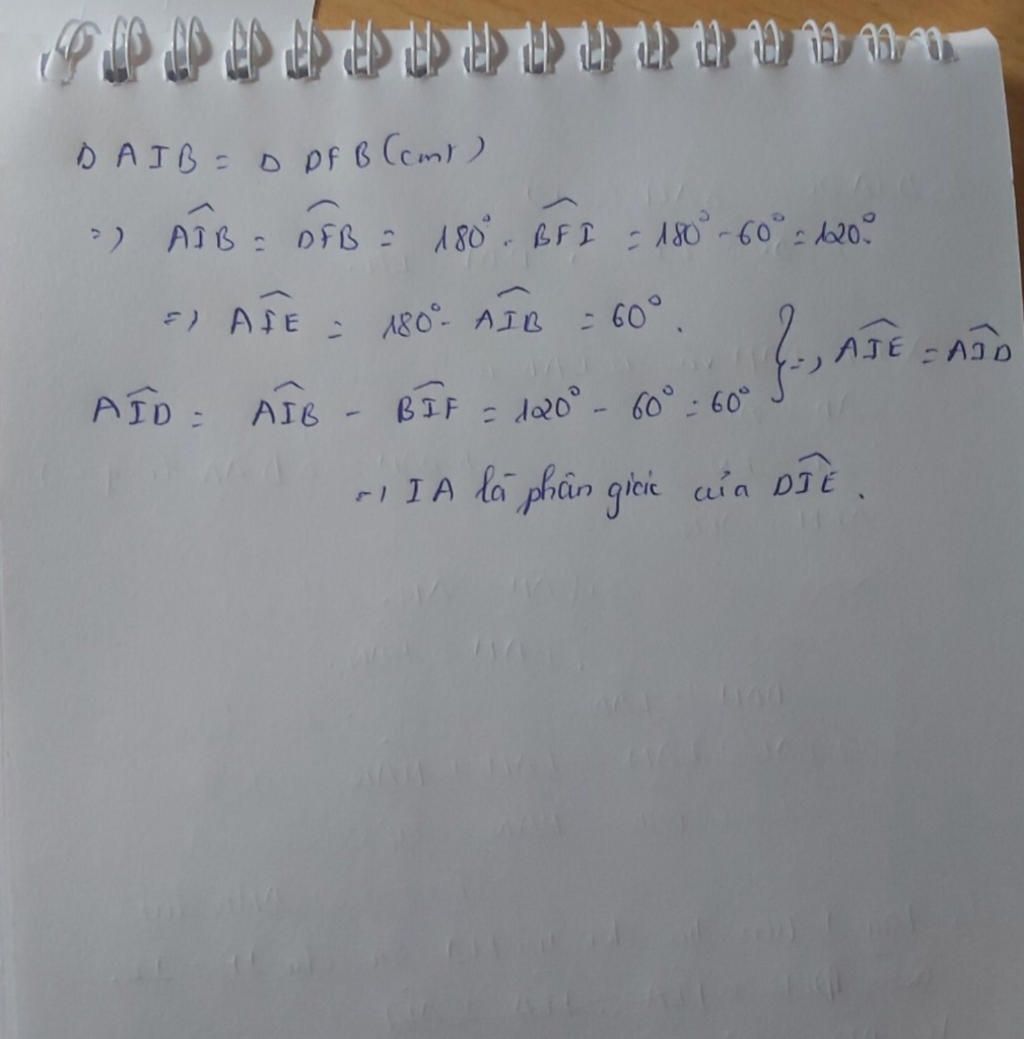 Δ AIB = Δ DFB (cmt)
=> \widehat{AIB} = \widehat{DFB} = 180° - \widehat{BFI} = 180° - 60° = 120°.
=> \widehat{AIE} = 180° - \widehat{AIB} = 60°.
} => \widehat{AIE} = \widehat{AID}
\widehat{AID} = \widehat{AIB} - \widehat{BIF} = 120° - 60° = 60°
=> IA là phân giác của \widehat{DIE}.